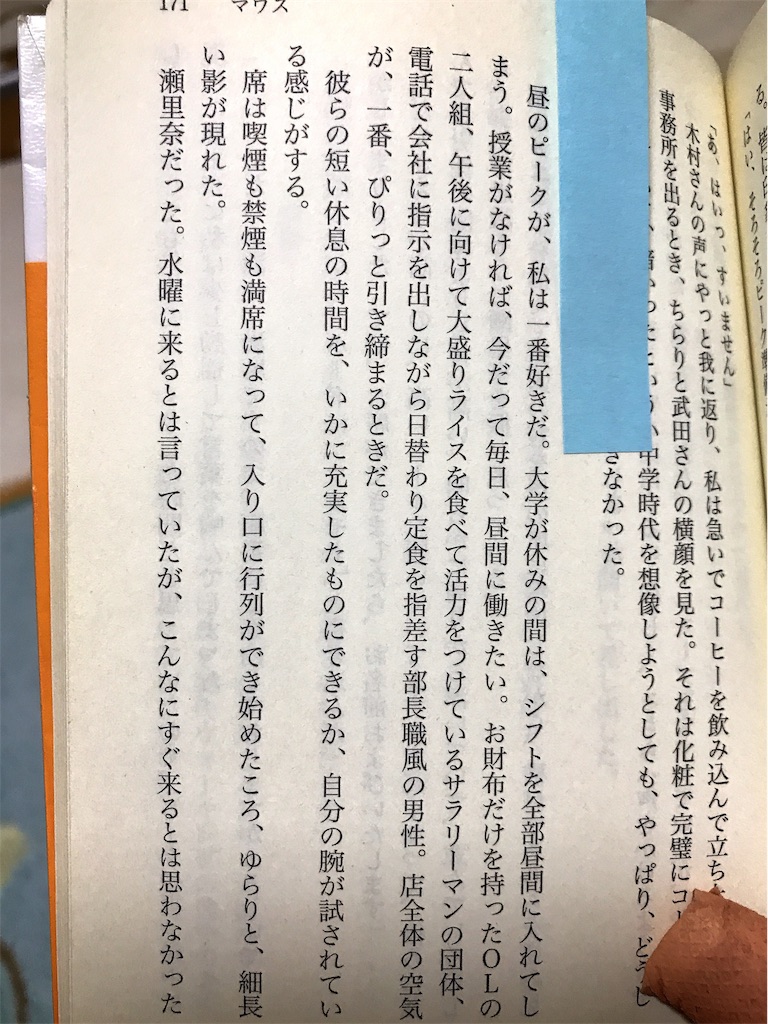 171 マウス
る。
「はい、そろそろピーク
「あ、はいっ、すいません」
木村さんの声にやっと我に返り、私は急いでコーヒーを飲み込んで立ち
事務所を出るとき、ちらりと武田さんの横顔を見た。それは化粧で完璧にコー
中学時代を想像しようとしても、やっぱり、どうし
きなかった。
昼のピークが、私は一番好きだ。大学が休みの間は、シフトを全部昼間に入れてし
まう。授業がなければ、今だって毎日、昼間に働きたい。お財布だけを持ったOLの
二人組、午後に向けて大盛りライスを食べて活力をつけているサラリーマンの団体、
電話で会社に指示を出しながら日替わり定食を指差す部長職風の男性。店全体の空気
が、一番、ぴりっと引き締まるときだ。
彼らの短い休息の時間を、いかに充実したものにできるか、自分の腕が試されてい
る感じがする。
席は喫煙も禁煙も満席になって、入り口に行列ができ始めたころ、ゆらりと、細長
い影が現れた。
瀬里奈だった。水曜に来るとは言っていたが、こんなにすぐ来るとは思わなかった